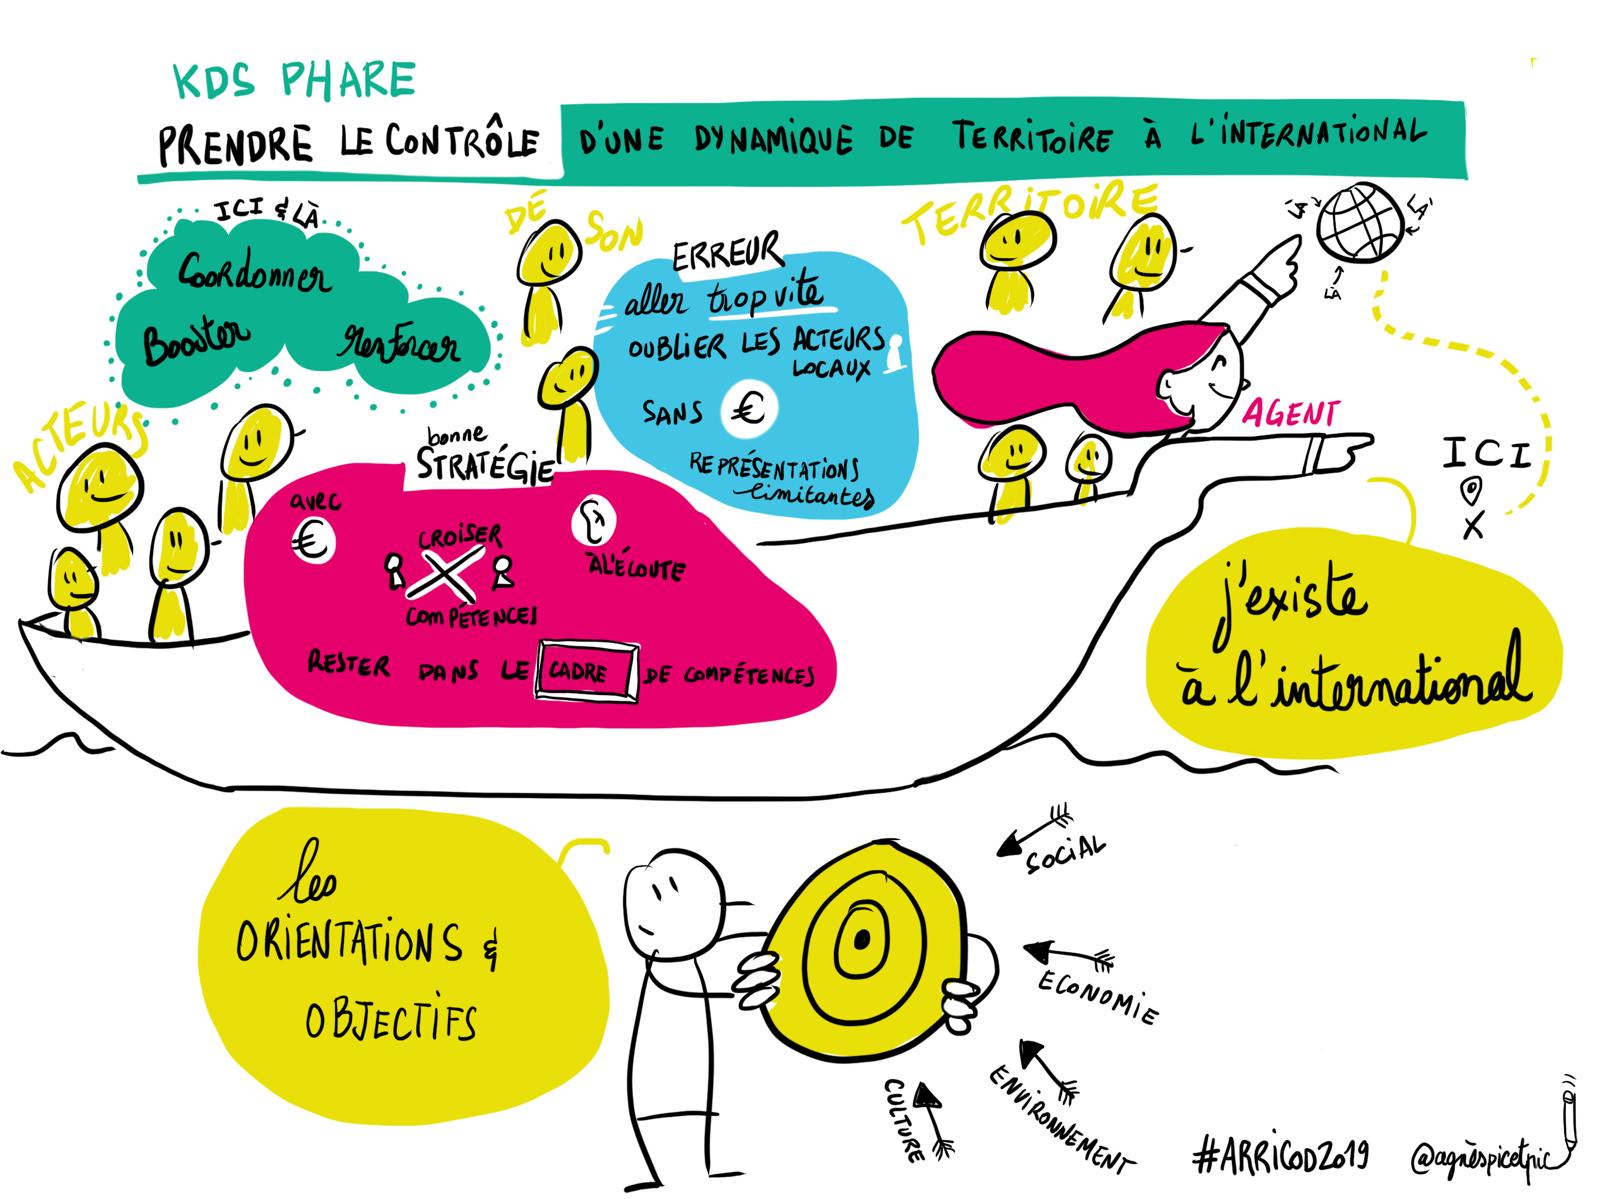 KDS PHARE
PRENDRE LE CONTRÔLE D'UNE DYNAMIQUE DE TERRITOIRE À L'INTERNATIONAL
ICI & LÀ
Coordonner
Booster
renforcer
ACTEURS
DÉ SON
TERRITOIRE
ERREUR
aller trop vite
OUBLIER LES ACTEURS
LOCAUX
SANS €
REPRÉSENTATIONS
limitantes
LÀ
LÀ
LÀ
AGENT
ICI
bonne
STRATÉGIE
avec
€
CROISER
COMPÉTENCES
À L'ÉCOUTE
RESTER DANS LE CADRE DE COMPÉTENCES
j'existe
à l'international
les
ORIENTATIONS &
OBJECTIFS
SOCIAL
ECONOMIE
ENVIRONNEMENT
CULTURE
#ARRICOD2019
@agnèspicetpic